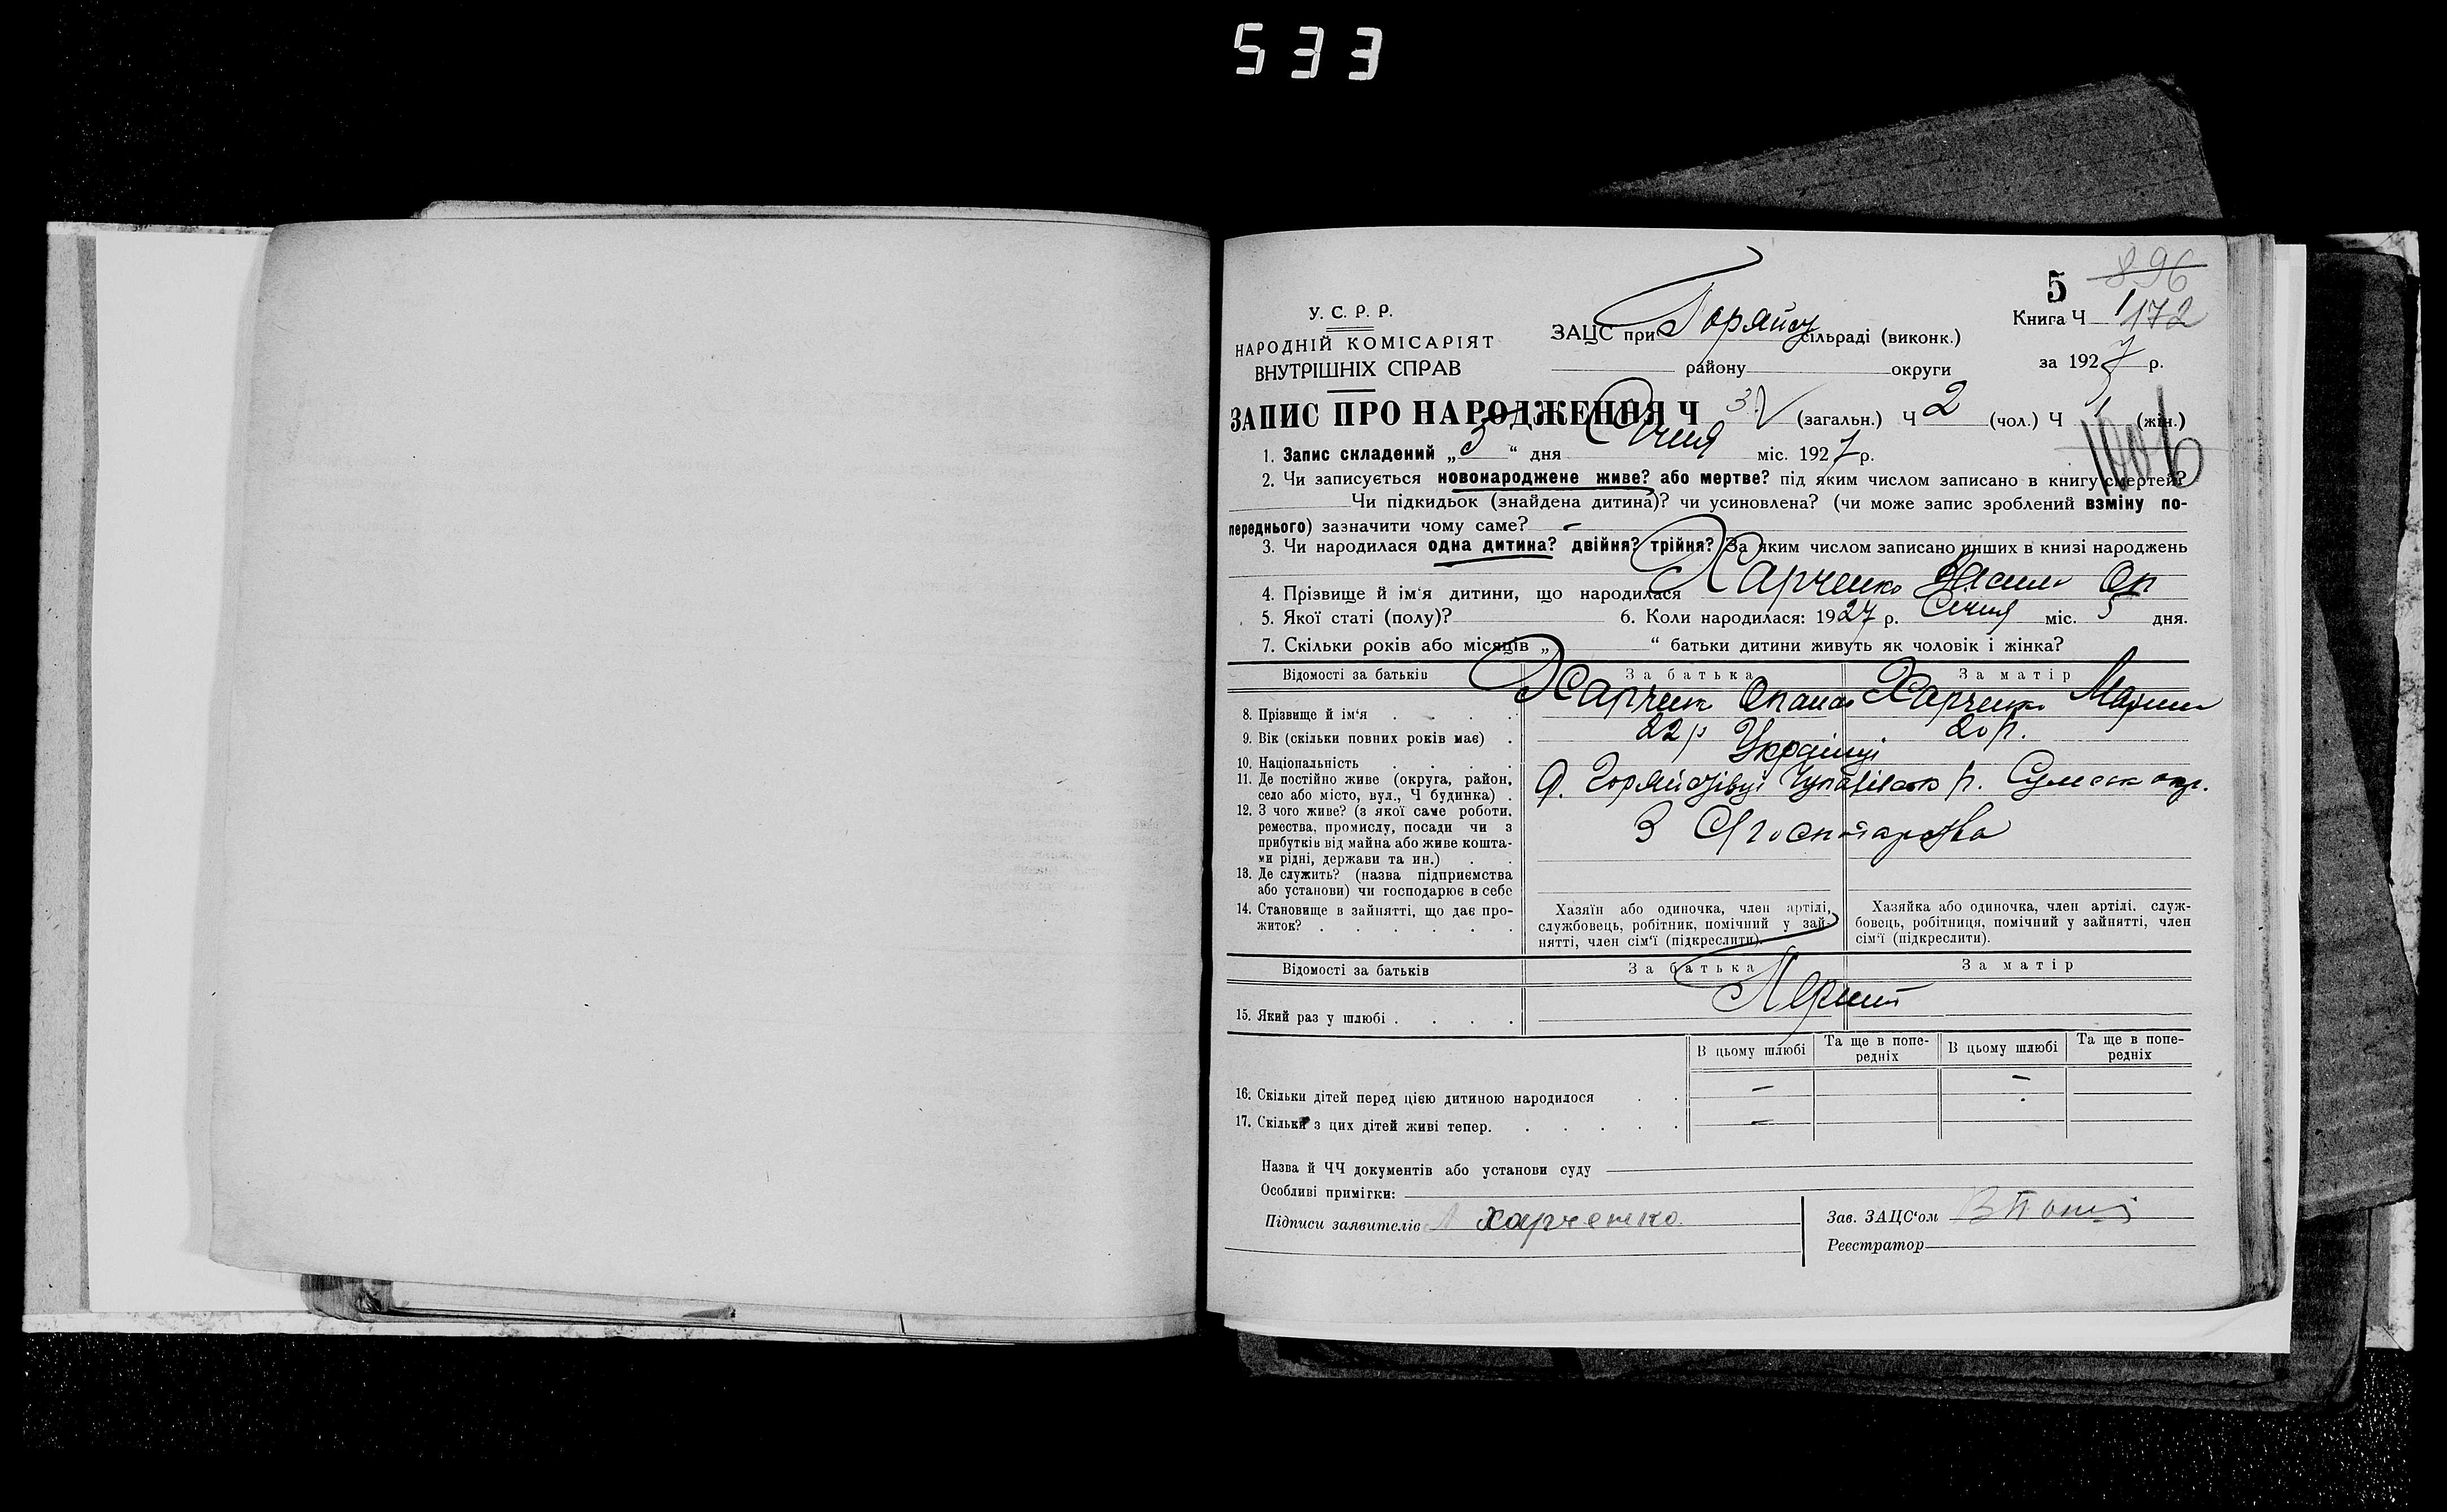 533
5 896
У. С. Р. Р.
Книга Ч 1172
НАРОДНІЙ КОМІСАРІЯТ
ВНУТРІШНІХ СПРАВ
ЗАЦС при Горяйсу сільраді (виконк.)
району округи
за 1927 р.
ЗАПИС ПРО НАРОДЖЕННЯ Ч 3 (загальн.) Ч 2 (чол.) Ч 1 (жін.)
1. Запис складений „5“ дня Січня міс. 1927 р.
1006
2. Чи записується новонароджене живе? або мертве? під яким числом записано в книгу смертей?
Чи підкидьок (знайдена дитина)? чи усиновлена? (чи може запис зроблений взміну по-
переднього) зазначити чому саме? –
3. Чи народилася одна дитина? двійня? трійня? За яким числом записано инших в книзі народжень
4. Прізвище й ім‘я дитини, що народилася Харченко Оп
5. Якої статі (полу)? 6. Коли народилася: 1927 р. Січня міс. 5 дня.
7. Скільки років або місяців „ “ батьки дитини живуть як чоловік і жінка?
Відомості за батьків За батька За матір
8. Прізвище й ім‘я . . . . Харченк Опанас Харченко Марин
9. Вік (скільки повних років має) . 22 р 20 р.
10. Національність . . . . Українці
11. Де постійно живе (округа, район,
село або місто, вул., Ч будинка) . р. Сумськ окр.
12. З чого живе? (з якої саме роботи,
ремества, промислу, посади чи з
прибутків від майна або живе кошта-
ми рідні, держави та ин.) . .
З С/господарства
13. Де служить? (назва підприємства
або установи) чи господарює в себе
14. Становище в зайнятті, що дає про-
житок? . . . . . .
Хазяїн або одиночка, член артілі,
службовець, робітник, помічний у зай-
нятті, член сім‘ї (підкреслити).
Хазяйка або одиночка, член артілі, служ-
бовець, робітниця, помічний у зайнятті, член
сім‘ї (підкреслити).
Відомості за батьків За батька За матір
15. Який раз у шлюбі . . . . Перший
В цьому шлюбі Та ще в попе-
редніх В цьому шлюбі Та ще в попе-
редніх
16. Скільки дітей перед цією дитиною народилося . . – –
17. Скільки з цих дітей живі тепер. . . . . . –
Назва й ЧЧ документів або установи суду
Особливі примітки:
Підписи заявителів Харченко
Зав. ЗАЦС‘ом
Реєстратор